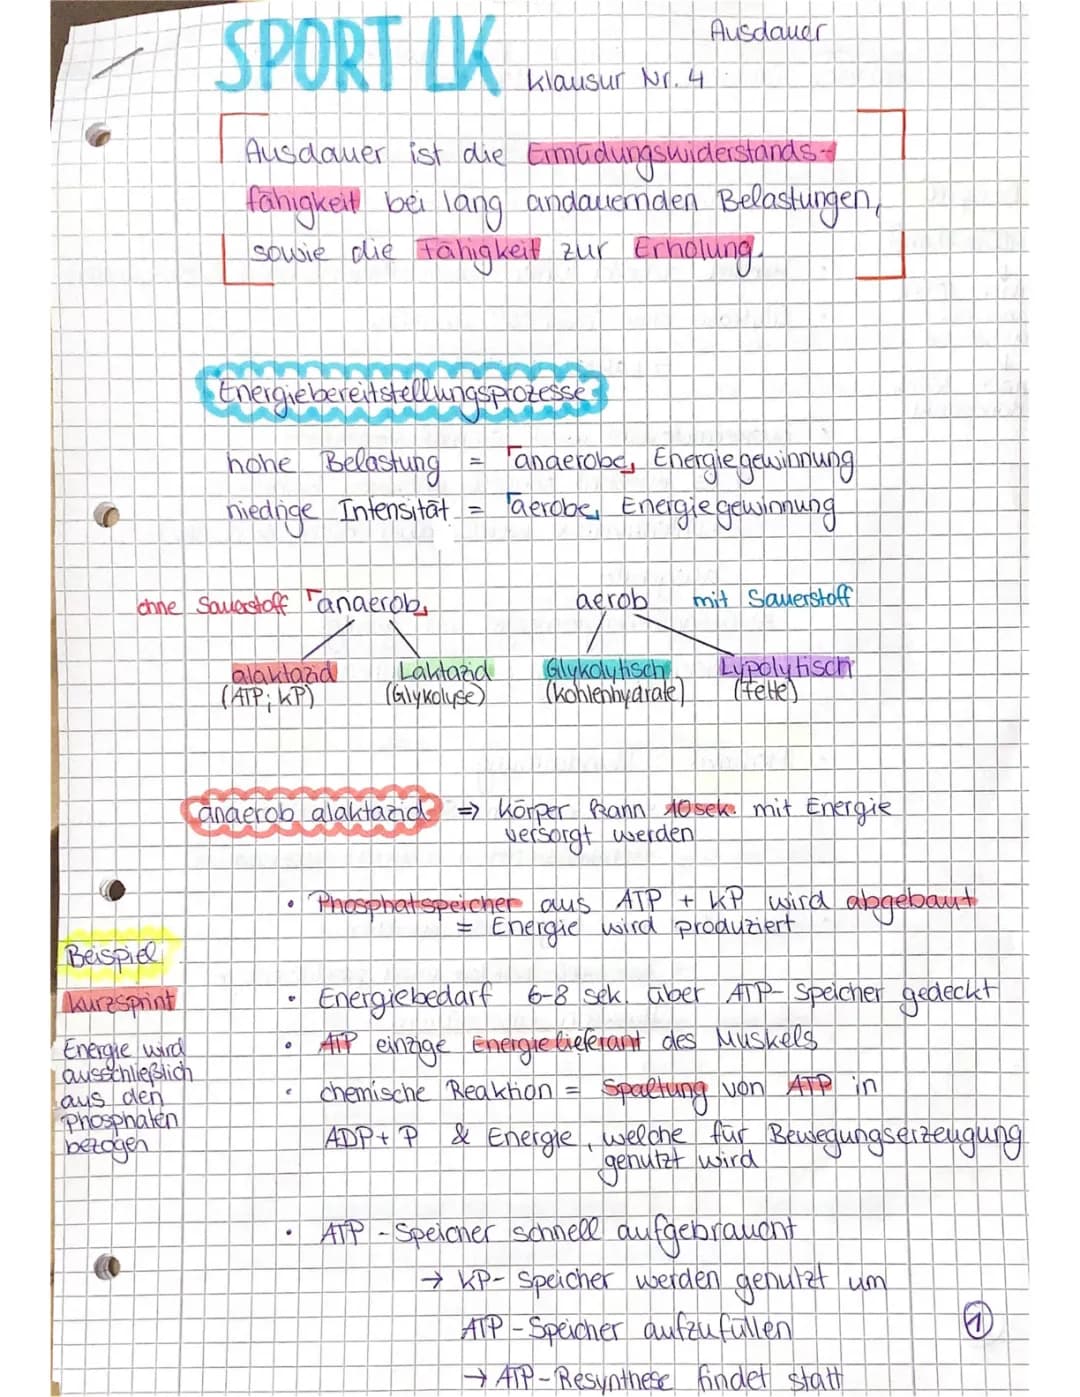 SPORT LK
Ausdauer
Klausur Nr. 4
Ausdauer ist die Ermüdungswiderstands-
fähigkeit bei lang andauernden Belastungen,
sowie die Fähigkeit zur Erholung.
Energiebereitstellungsprozesse:
hohe Belastung = anaerobe Energiegewinnung
niedrige Intensität = aerobe Energiegewinnung
ohne Sauerstoff anaerob
aerob mit Sauerstoff
alaktazid Laktazid Glykolytisch Lypolytisch
(ATP; KP) (Glykolyse) (Kohlenhydrate) (Fette)
anaerob alaktazid => Körper kann 10sek. mit Energie
versorgt werden
• Phosphatspeicher aus ATP + KP wird abgebaut
= Energie wird produziert
Beispiel:
Kurzsprint
Energie wird
ausschließlich
aus den
Phosphaten
bezogen
• Energiebedarf 6-8 sek. über ATP-Speicher gedeckt
• ATP einzige Energielieferant des Muskels
• chemische Reaktion = Spaltung von ATP in
ADP + P & Energie, welche für Bewegungserzeugung
genutzt wird
• ATP - Speicher schnell aufgebraucht
→ KP- Speicher werden genutzt um
ATP - Speicher aufzufüllen
→ ATP - Resynthese findet statt
1